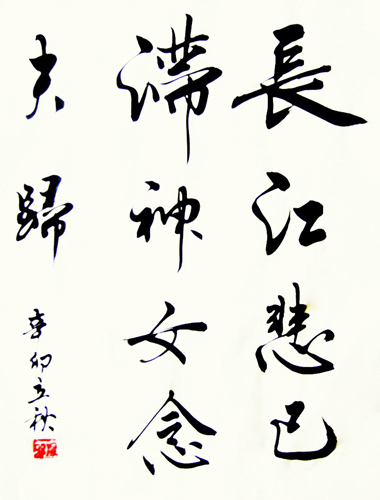 長江悲已
滯神女念
夫歸
辛卯立秋